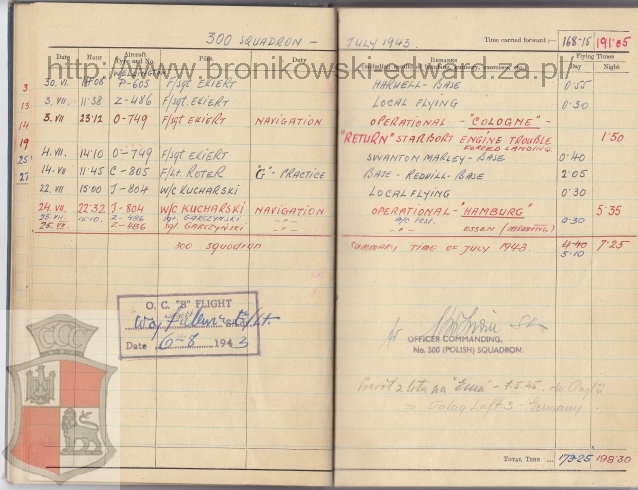 300 SQUADRON – JULY 1943. Time carried forward:— 168-15 191·05
Date Hour Aircraft Type and No. Pilot Duty REMARKS Flying Times
Day Night
http://www.bronikowski-edward.za.pl/
WELLINGTON
3 30. VI. P-605 F/sgt EKIERT HARWELL - BASE 0·55
13 3. VII. 11'38 Z-486 F/sgt. EKIERT LOCAL FLYING 0·30
14 3. VII 23'12 O-749 F/sgt EKIERT NAVIGATION OPERATIONAL - "COLOGNE" -
19 "RETURN" STARBORT ENGINE TROUBLE 1·50
FORCED LANDING
25 4. VII. 14'10 O-749 F/sgt EKIERT SWANTON MARLEY - BASE 0·40
27 14. VII 11'45 C-805 F/Lt. ROTER "G" - PRACTICE BASE - REDHILL - BASE 2·05
22. VII 15'00 J-804 W/C KUCHARSKI LOCAL FLYING 0·30
24. VII. 22'32 J-804 W/C KUCHARSKI NAVIGATION OPERATIONAL - "HAMBURG" 5·35
25. VII. 15'10. Z-486 sgt. GARCZYŃSKI –"– A/C test. 0·30
25. VII. Z-486 sgt. GARCZYŃSKI –"– –"– ESSEN (MISSING)
300 squadron SUMMARY TIME OF JULY 1943. 4·40 7·25
5·10
O. C. "B" FLIGHT
Date 6-8 1943
OFFICER COMMANDING,
No. 300 (POLISH) SQUADRON.
Powrót z lotu na "Essen" - 7.5.45. do Anglii
ze Stalag Luft 3 - Germany.
TOTAL TIME ... 173·25 198·30